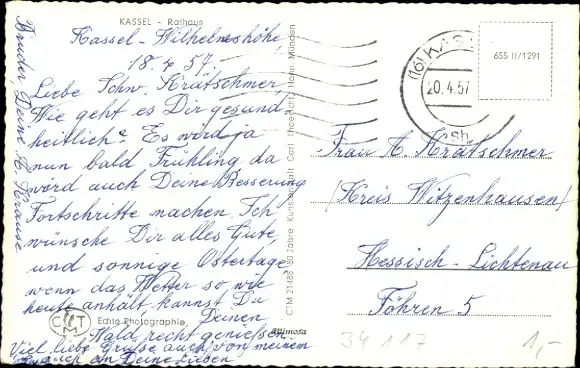 KASSEL - Rathaus
Kassel-Wilhelmshöhe,
18.4.57.
Liebe Schw. Krätschmer,
Wie geht es Dir gesund
heitlich? Es wird ja
nun bald Frühling da
werd auch Deine Besserung
Fortschritte machen. Ich
wünsche Dir alles Gute,
und sonnige Ostertage,
wenn das Wetter so wie
heute anhält, kannst Du
Deinen
Wald recht genießen.
Viel liebe Grüße auch von meinem
auch an Deine Lieben
Bruder, Deine Krause
CTM
Echte Photographie
Mimosa
C"M 21486 80 Jahre Kunstanstalt Carl Hann. Münden
(16) KAS
20.4.57
655 II/1291
Frau Krätschmer
(Kreis Witzenhausen)
Hessisch-Lichtenau
Föhren 5
34 117
1,-